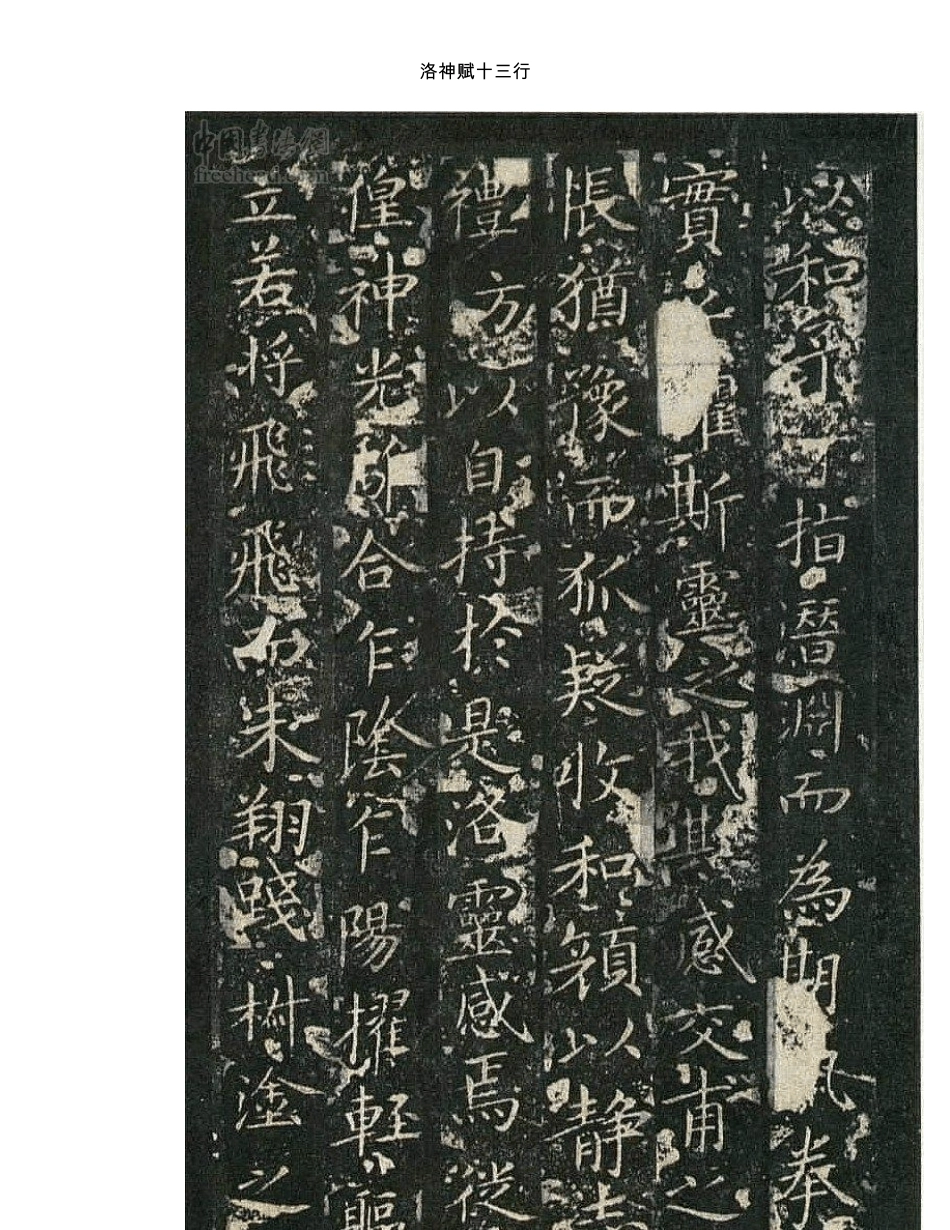 洛神赋十三行
中国书法网
以和予指潛淵而為期拳
實懼斯靈之我感交甫之
悵猶豫而狐疑收和顏以静志
禮方以自持於是洛靈感焉從
偟神光合乍陰乍陽擢輕軀
立若将飛飛而未翔踐椒塗之